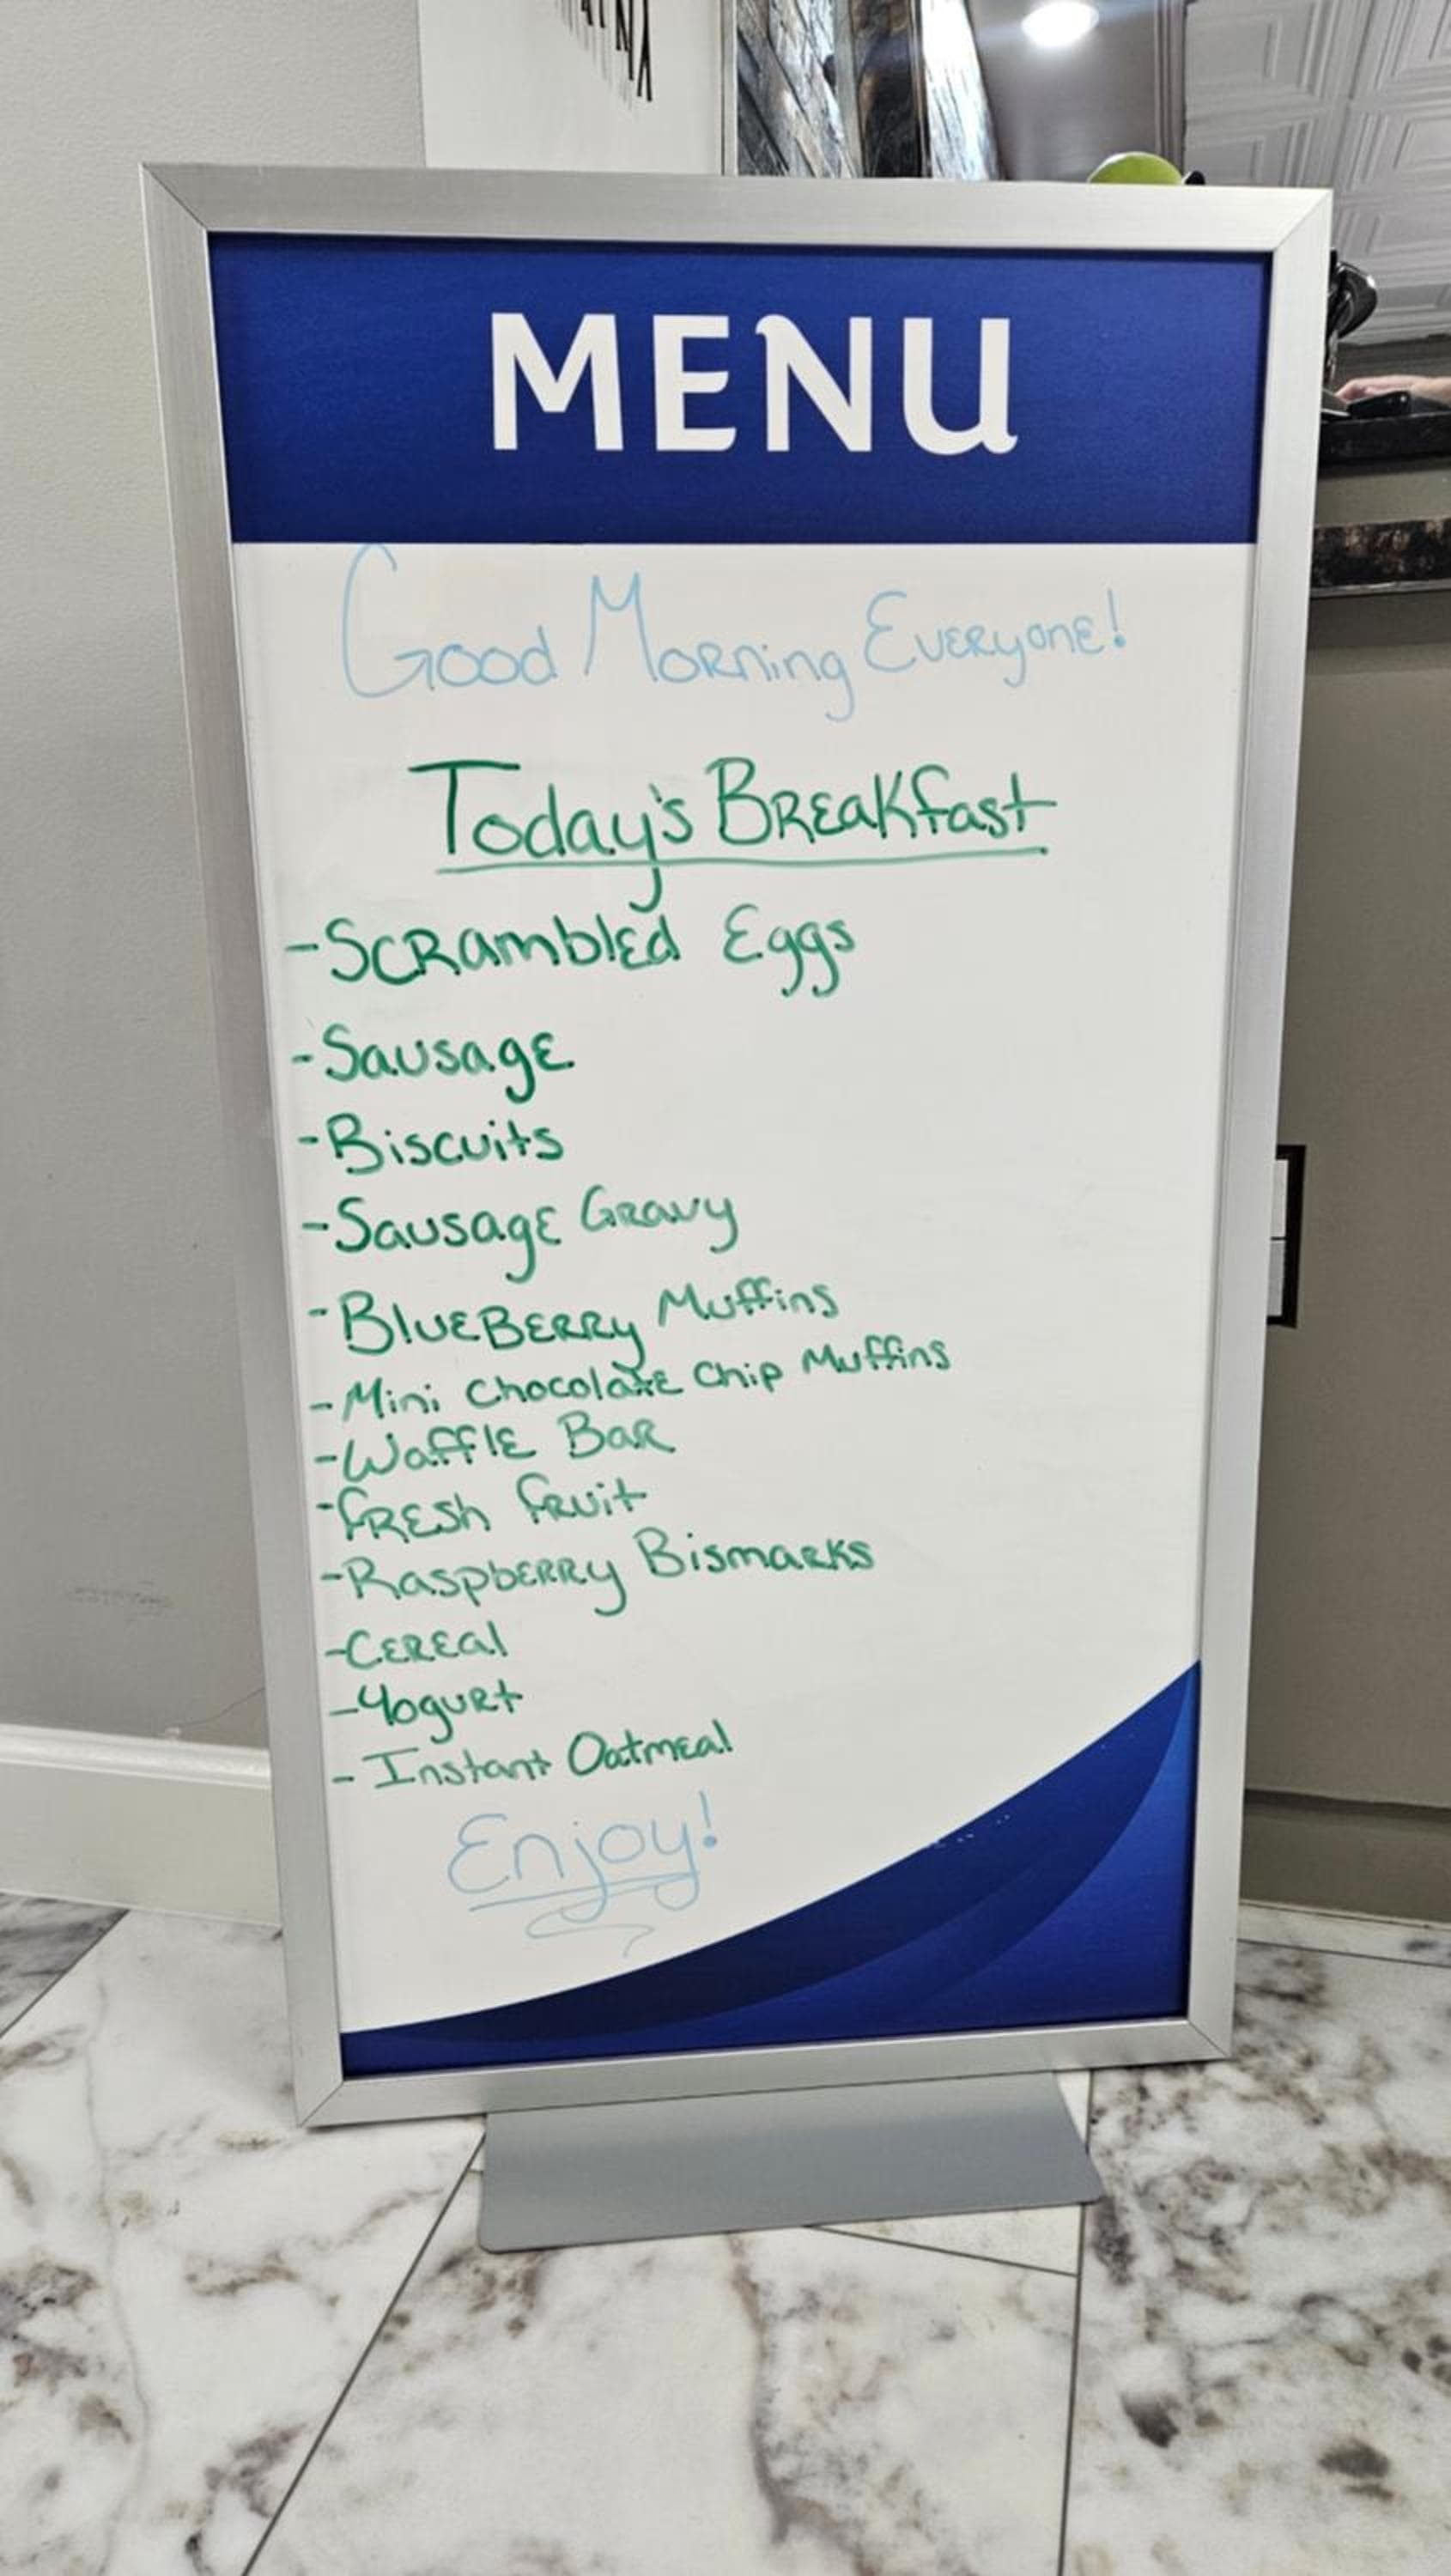 MENU
Good Morning Everyone!
Today's Breakfast
- Scrambled Eggs
- Sausage
- Biscuits
- Sausage Gravy
- Blueberry Muffins
- Mini Chocolate Chip Muffins
- Waffle Bar
- Fresh Fruit
- Raspberry Bismarks
- Cereal
- Yogurt
- Instant Oatmeal
Enjoy!